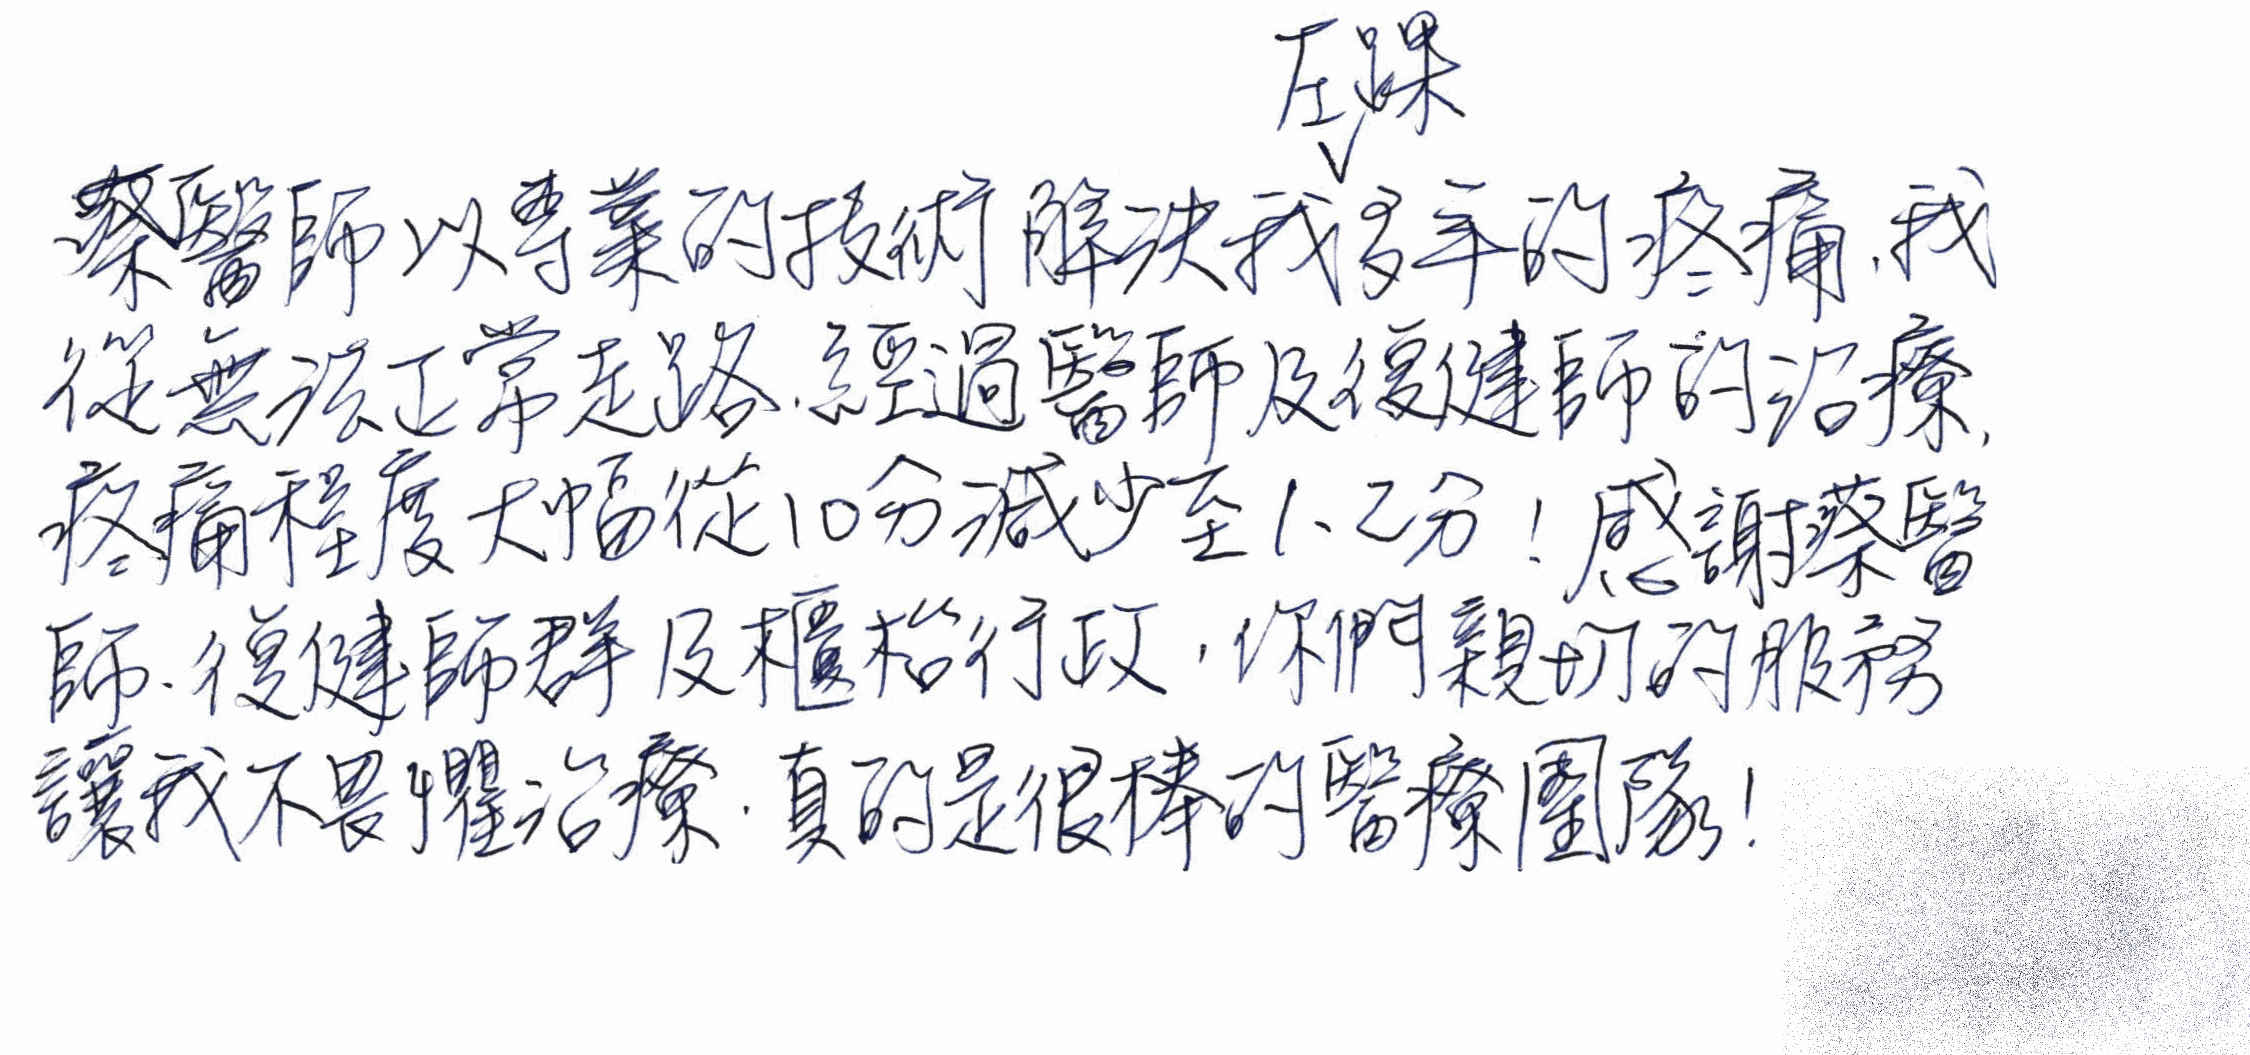 左踝
蔡醫師以專業的技術解決我多年的疼痛,我
從無法正常走路,經過醫師及復健師的治療,
疼痛程度大幅從10分減少至1、2分!感謝蔡醫
師、復健師群及櫃枱行政,你們親切的服務
讓我不畏懼治療,真的是很棒的醫療團隊!